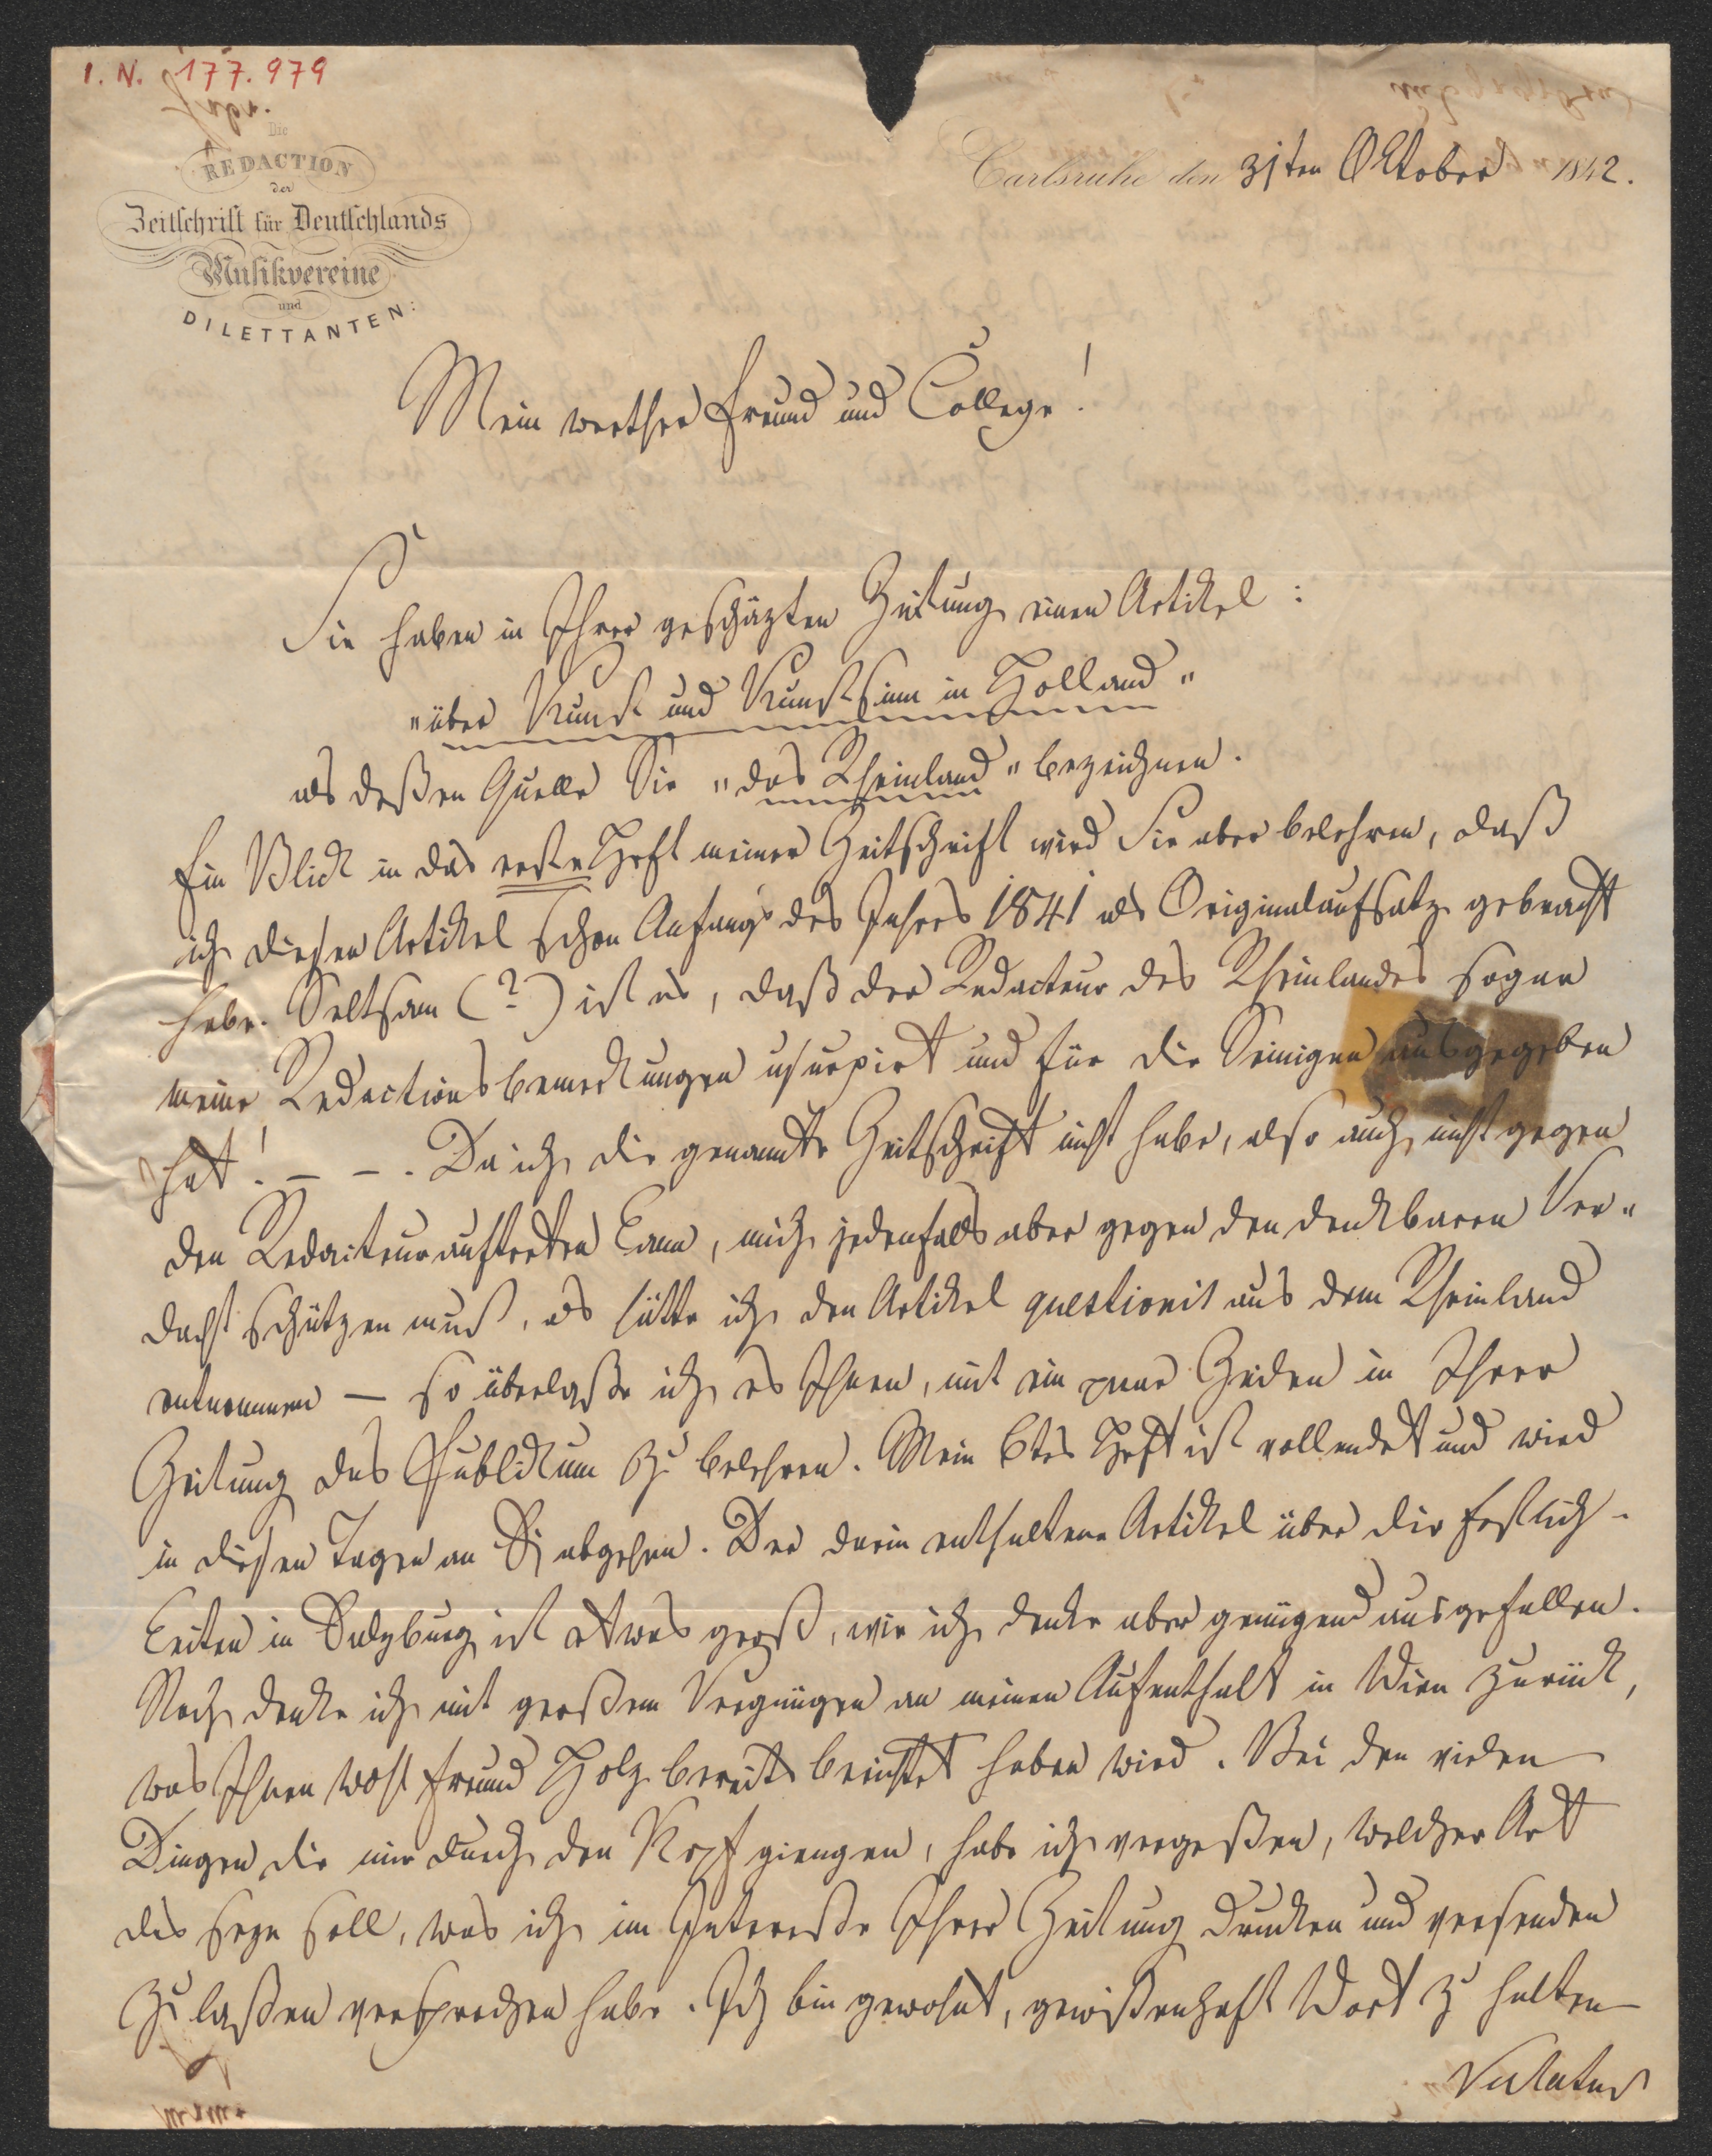 I. N. 177.979
Die
REDACTION
der
Zeitschrift für Deutschlands
Musikvereine
und
DILETTANTEN:
Carlsruhe den 31ten Oktober 1842.
Mein werther Freund und College!
Sie haben in Ihrer geschäzten Zeitung einen Artikel:
"über Kunst und Kunstsinn in Holland"
als deßen Quelle Sie "das Rheinland" bezeichnen.
Ein Blick in das erste Heft meiner Zeitschrift wird Sie aber belehren, daß
ich diesen Artikel schon Anfangs des Jahres 1841 als Originalaufsatz gebracht
habe. Seltsam (?) ist es, daß der Redacteur des Rheinlandes sogar
meine Redactionsbemerkungen usurpirt und für die Seinigen ausgegeben
hat! – – . Da ich die genannte Zeitschrift nicht habe, also auch nicht gegen
den Redacteur auftreten kann, mich jedenfalls aber gegen den denkbaren Ver-
dacht schützen muß, als hätte ich den Artikel questionis aus dem Rheinland
entnommen — so überlaße ich es Ihnen, mit ein paar Zeilen in Ihrer
Zeitung das Publikum zu belehren. Mein 6tes Heft ist vollendet und wird
in diesen Tagen an Sie abgehen. Der darin enthaltene Artikel über die Festlich-
keiten in Salzburg ist etwas groß, wie ich denke aber genügend ausgefallen.
Noch denke ich mit großem Vergnügen an meinen Aufenthalt in Wien zurück,
was Ihnen wohl Freund Holz bereits berichtet haben wird. Bei den vielen
Dingen die mir durch den Kopf giengen, habe ich vergeßen, welcher Art
das seyn soll, was ich im Intereße Ihrer Zeitung drucken und versenden
zu laßen versprochen habe. Ich bin gewohnt, gewißenhaft Wort zu halten